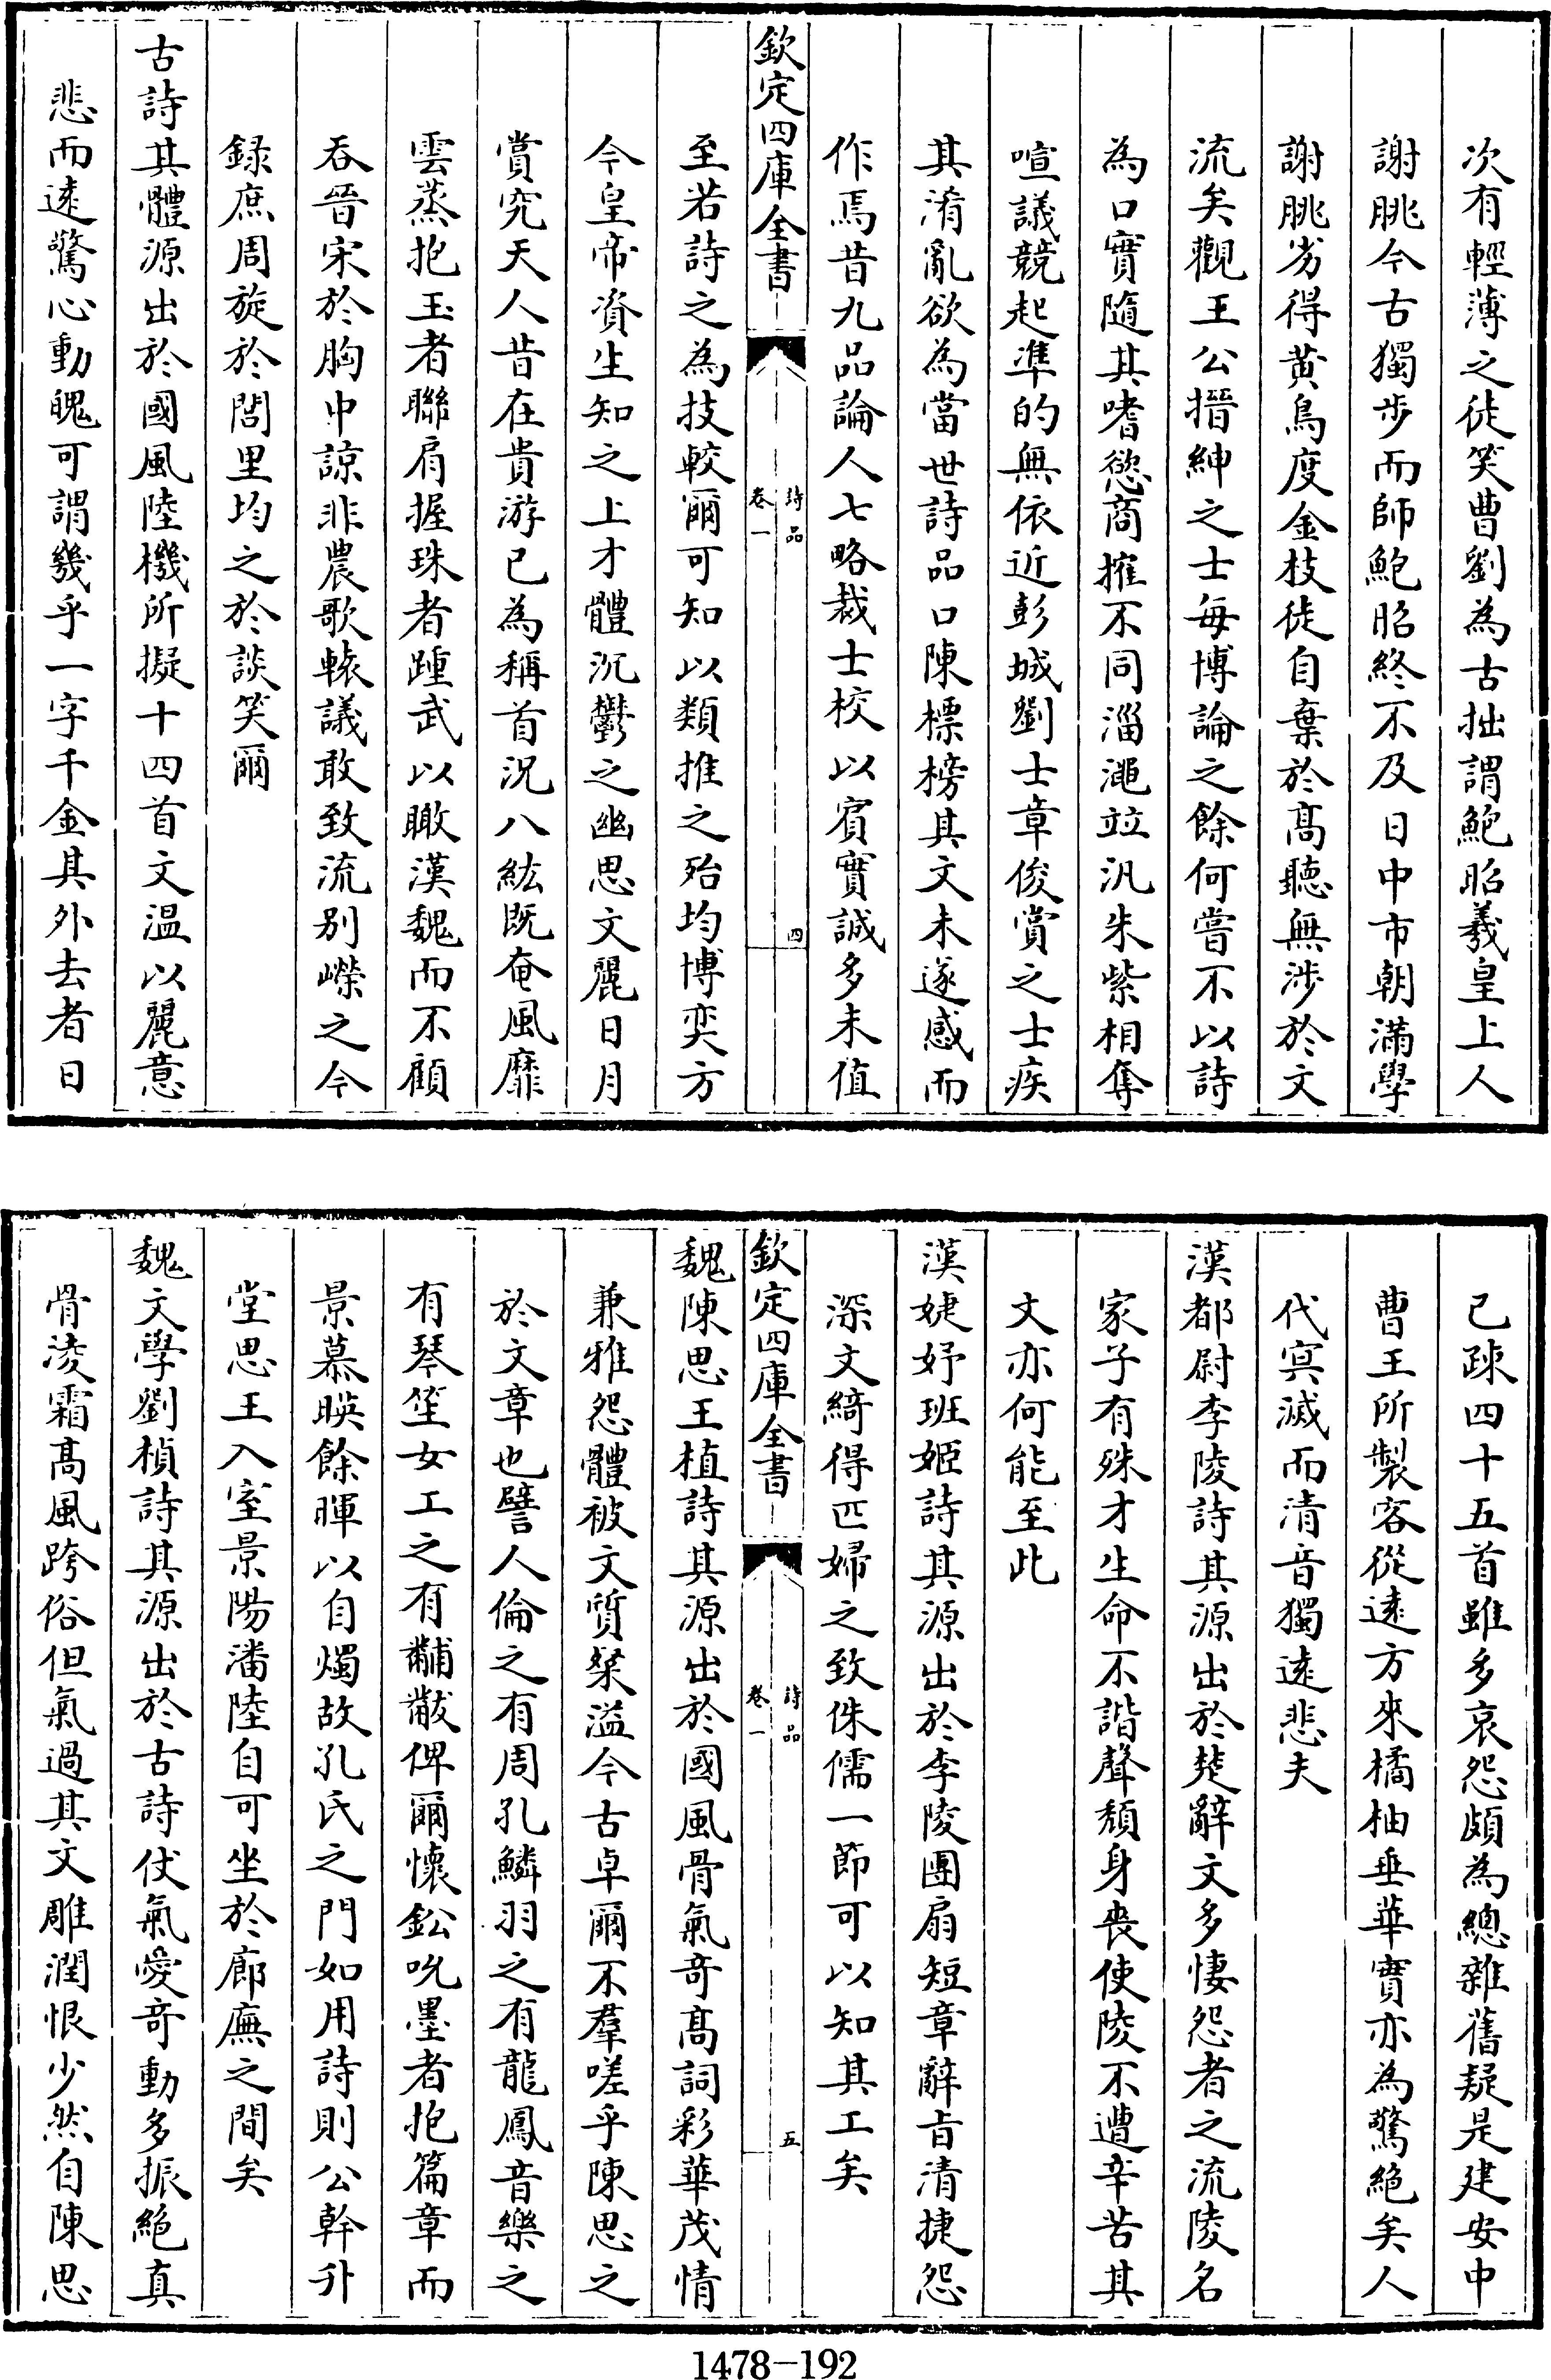 次有輕薄之徒笑曹劉為古拙謂鮑昭羲皇上人
謝脁今古獨步而師鮑昭終不及日中市朝滿學
謝脁劣得黃鳥度金枝徒自棄於髙聽無涉於文
流矣觀王公搢紳之士每博論之餘何嘗不以詩
為口實隨其嗜慾商搉不同淄澠竝汎朱紫相奪
喧議競起凖的無依近彭城劉士章俊賞之士疾
其淆亂欲為當世詩品口陳標榜其文未遂感而
作焉昔九品論人七略裁士校以賓實誠多未值
欽定四庫全書
詩品
卷一
四
至若詩之為技較爾可知以類推之殆均博奕方
今皇帝資生知之上才體沉鬱之幽思文麗日月
賞究天人昔在貴游已為稱首況八紘既奄風靡
雲蒸抱玉者聯肩握珠者踵武以瞰漢魏而不顧
吞晉宋於胸中諒非農歌轅議敢致流别嶸之今
録庶周旋於閭里均之於談笑爾
古詩其體源出於國風陸機所擬十四首文温以麗意
悲而逺驚心動魄可謂幾乎一字千金其外去者日
已踈四十五首雖多哀怨頗為總雜舊疑是建安中
曹王所製客從逺方來橘柚垂華實亦為驚絶矣人
代㝠滅而清音獨逺悲夫
漢都尉李陵詩其源出於楚辭文多悽怨者之流陵名
家子有殊才生命不諧聲頽身喪使陵不遭辛苦其
文亦何能至此
漢婕妤班姬詩其源出於李陵團扇短章辭㫖清捷怨
深文綺得匹婦之致侏儒一節可以知其工矣
欽定四庫全書
詩品
卷一
五
魏陳思王植詩其源出於國風骨氣奇髙詞彩華茂情
兼雅怨體被文質粲溢今古卓爾不羣嗟乎陳思之
於文章也譬人倫之有周孔鱗羽之有龍鳳音樂之
有琴笙女工之有黼黻俾爾懷鈆吮墨者抱篇章而
景慕暎餘暉以自燭故孔氏之門如用詩則公幹升
堂思王入室景陽潘陸自可坐於廊廡之間矣
魏文學劉楨詩其源出於古詩仗氣愛奇動多振絶真
骨淩霜髙風跨俗但氣過其文雕潤恨少然自陳思
1478-192